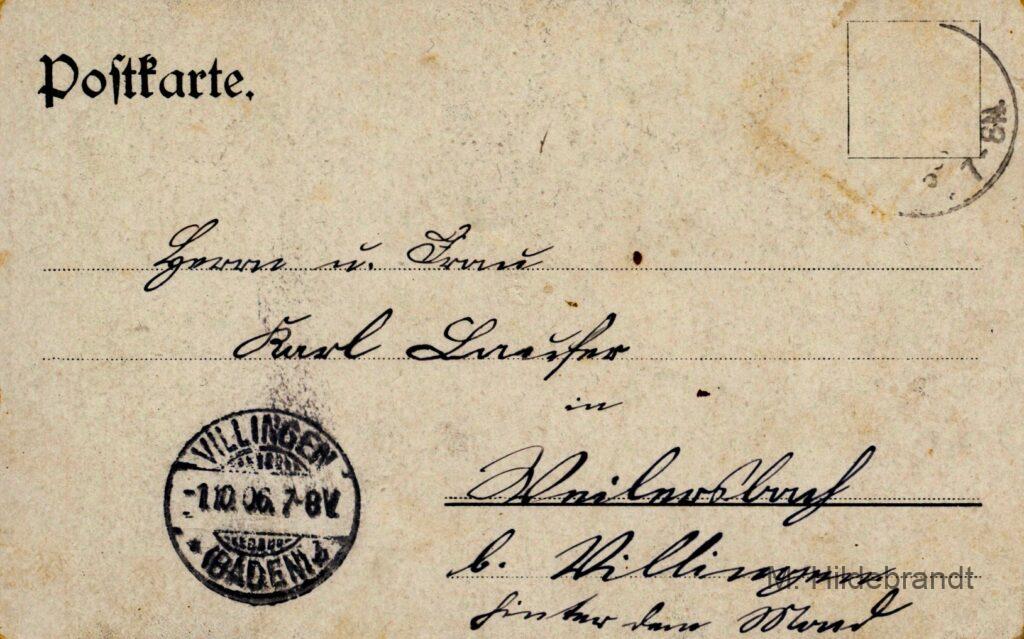 Postkarte.
7-8N.
Herrn u. Frau
Karl Laufer
in
Weilersbach
b. Villingen
hinter dem Mond
VILLINGEN
-1.10.06. 7-8V.
* (BADEN)
M. Hildebrandt